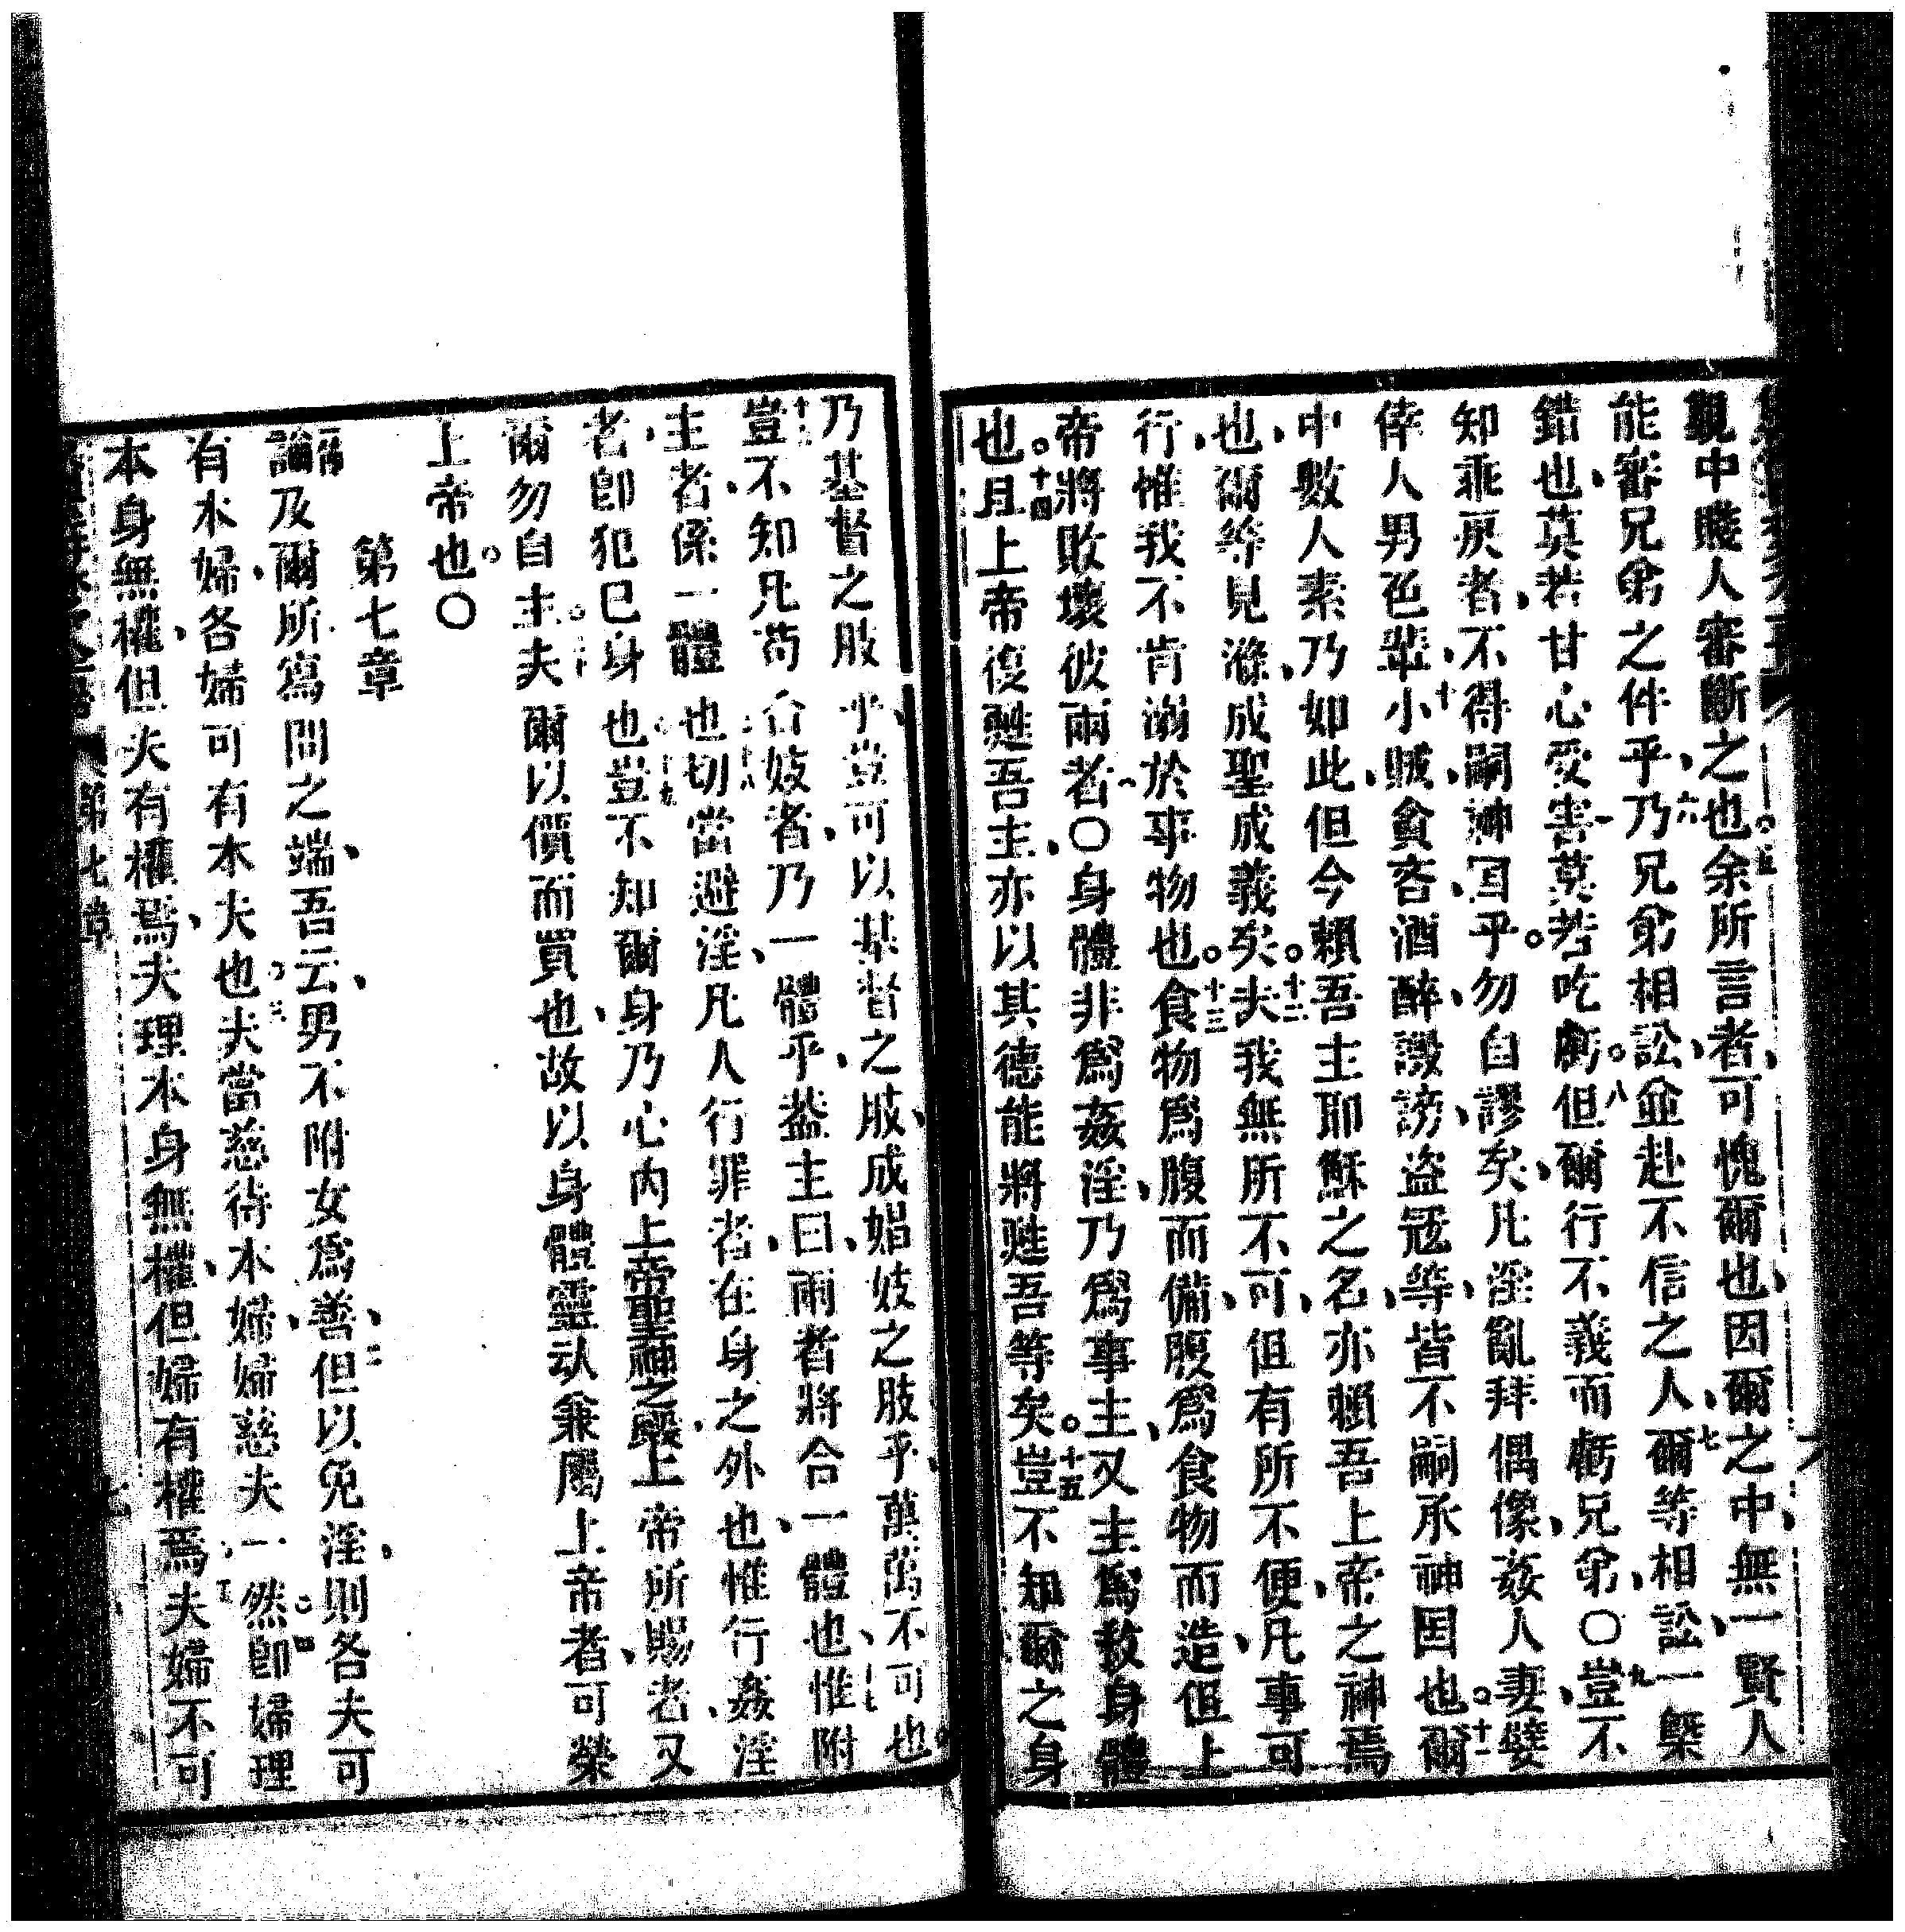 覩中賤人審斷之也。五余所言者、可愧爾也、因爾之中、無一賢人
能審兄弟之件乎、六乃兄弟相訟、並赴不信之人、七爾等相訟、一槩
錯也、莫若甘心受害、莫若吃虧。八但爾行不義而虧兄弟、〇九豈不
知乖戾者、不得嗣神囯乎。勿自謬矣、凡淫亂拜偶像、姦人妻、嬖
倖人男色輩、十小賊、貪吝、酒醉、譭謗、盜冦等、皆不嗣承神囯也。十一爾
中數人素乃如此、但今賴吾主耶穌之名、亦賴吾上帝之神焉
也、爾等見滌、成聖成義矣。十二夫我無所不可、但有所不便、凡事可
行、惟我不肯溺於事物也。十三食物爲腹而備、腹爲食物而造、但上
帝將敗壞彼兩者、〇身體非爲姦淫、乃爲事主、又主爲救身體
也。十四且上帝復甦吾主、亦以其德能將甦吾等矣。十五豈不知爾之身
乃基督之肢乎、豈可以基督之肢、成娼妓之肢乎、萬萬不可也。
十六豈不知凡苟合妓者、乃一體乎、葢主曰、兩者將合一體也、十七惟附
主者、係一體也、十八切當避淫、凡人行罪者、在身之外也、惟行姦淫
者、卽犯己身也、十九豈不知爾身乃心內上帝聖神之殿、上帝所賜者、又
爾勿自主。二十夫爾以價而買也、故以身體靈以兼屬上帝者、可榮
上帝也。〇
第七章
一論及爾所寫問之端、吾云、男不附女爲善、二但以免淫、則各夫可
有本婦、各婦可有本夫也。三夫當慈待本婦、婦慈夫一然。四卽婦理
本身無權、但夫有權焉、夫理本身無權、但婦有權焉、五夫婦不可
第七章